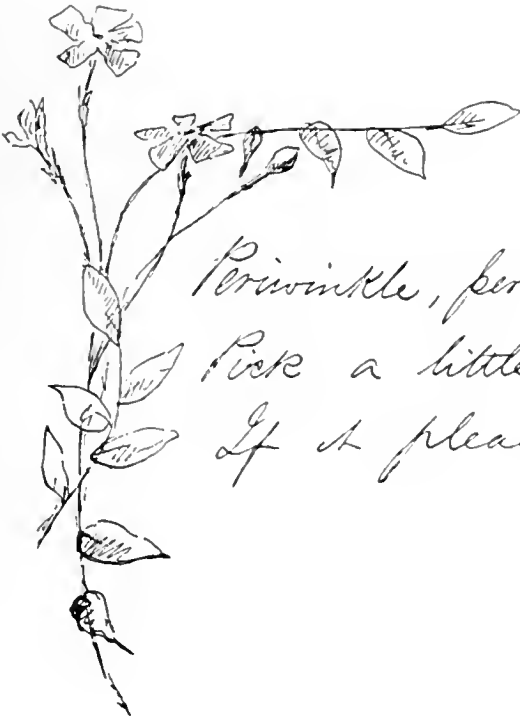 Periwinkle, per
Pick a little
If it plea